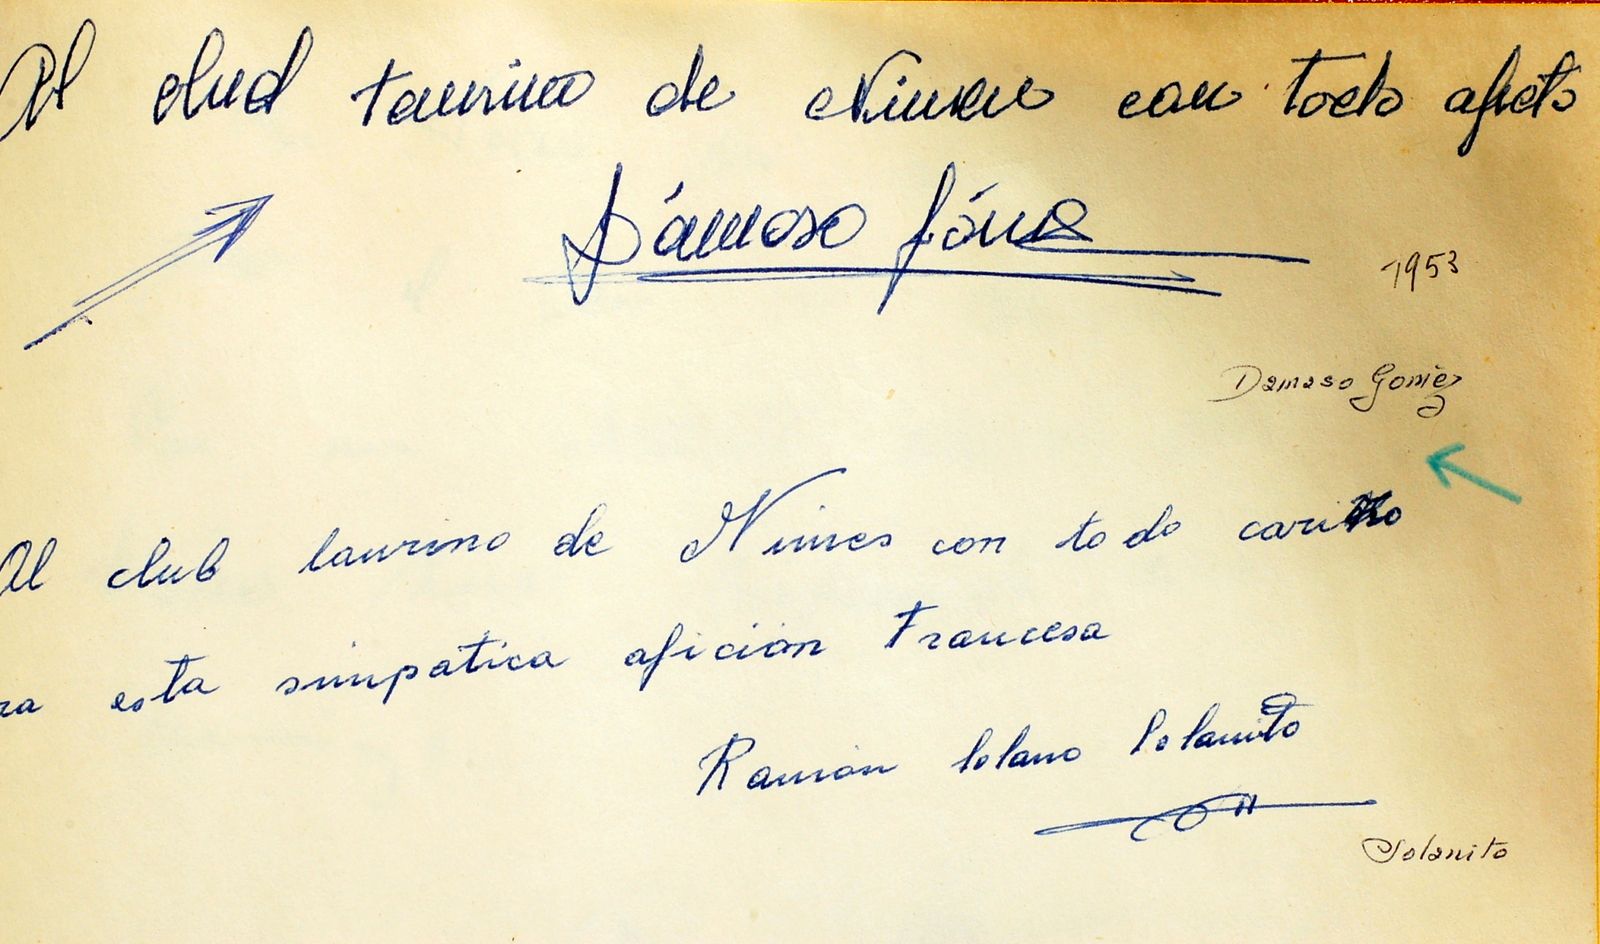 Al club taurino de Nimes con todo afecto
Dámaso Gómez
1953
Damaso Gomez
Al club taurino de Nimes con todo cariño
ra esta simpatica aficion Francesa
Ramón Solano Solanito
Solanito